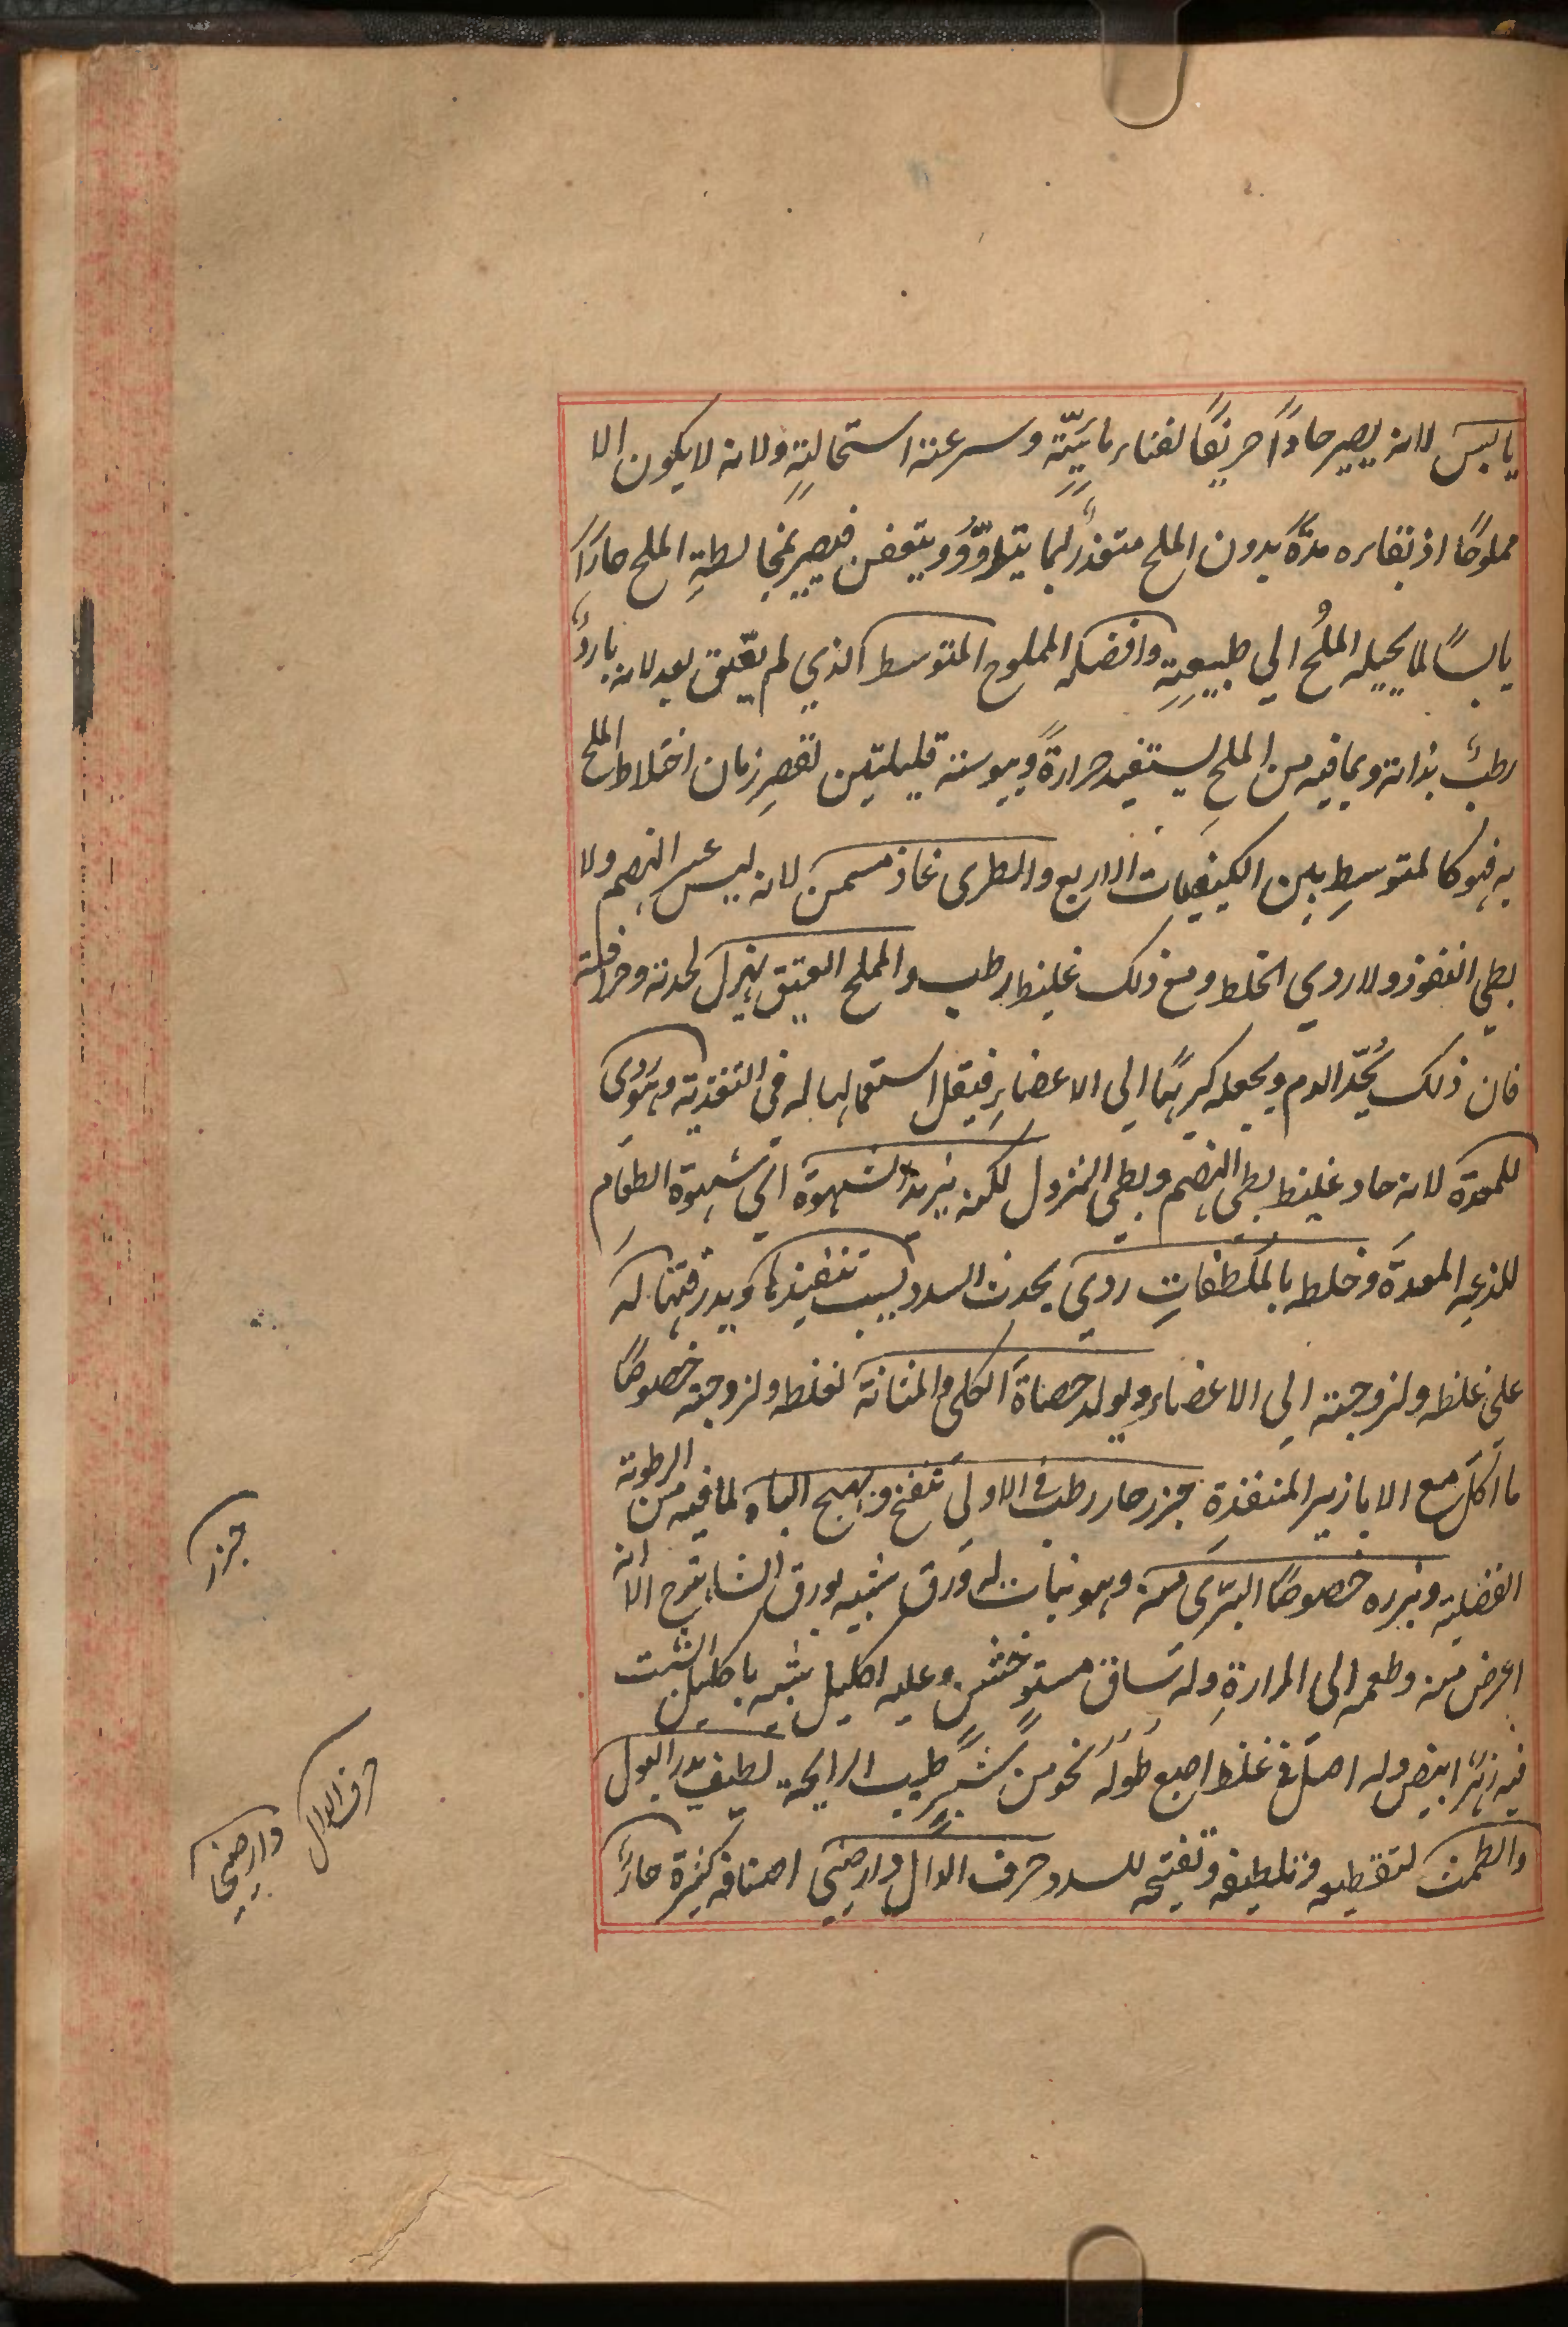 يابس لانه يصير حادًا حريفًا لفناء مائيّته وسرعة استحالته ولانه لا يكون الا
مملوحًا اذ بقاءه مدّة بدون الملح متعذر لما يتلزّز ويتعفن فيصير بمخالطة الملح حارًا
يابسًا لما يحيله الملح الي طبيعته وافضله المملوح المتوسط الذي لم يعتق بعد لانه باردٌ
رطبٌ بذاته وبما فيه من الملح يستفيد حرارةً ويبوسة قليلتين لقصر زمان اختلاط الملح
به فهو كالمتوسط بين الكيفيات الاربع والطرى غاذ مسمن لانه ليس عسر الهضم ولا
بطي النفوذ ولا ردي الخلط ومع ذلك غليظ رطب والمملح العتيق يهزل لحدته وحرافته
فان ذلك يُحدّ الدم ويجعله كريهًا الي الاعضاء فيقل استعمالها له في التغذية وهو ردى
للمعدة لانه حاد غليظ بطي الهضم وبطي النزول لكنه يزيد الشهوة اي شهوة الطعام
للذعه المعدة وخلطه بالملطفات ردي يحدث السدد بسبب تنفيذها وبدرقتها له
علي غلظه ولزوجته الي الاعضاء ويولد حصاة الكلي والمثانة لغلظه ولزوجته خصوصًا
ما اكل مع الابازير المنفذة جزر حار رطب في الاولي ينفخ ويهيج الباه لما فيه من الرطوبة
الفضلية وبزره خصوصًا البرّى منه وهو نبات له ورق شبيه بورق الشاهترج الا انه
اعرض منه وطعمه الى المرارة وله ساق مستو خشن وعليه اكليل شبيه باكليل الشبت
فيه زهر ابيض وله اصل في غلظ اصبع طوله نحو من شبر طيب الرايحة لطيف يدر البول
والطمث لتقطيعه وتلطيفه وتفتيحه للسدد حرف الدال دارصيني اصنافه كثيرة حارٌ
جزر
حرف الدال
دارصيني